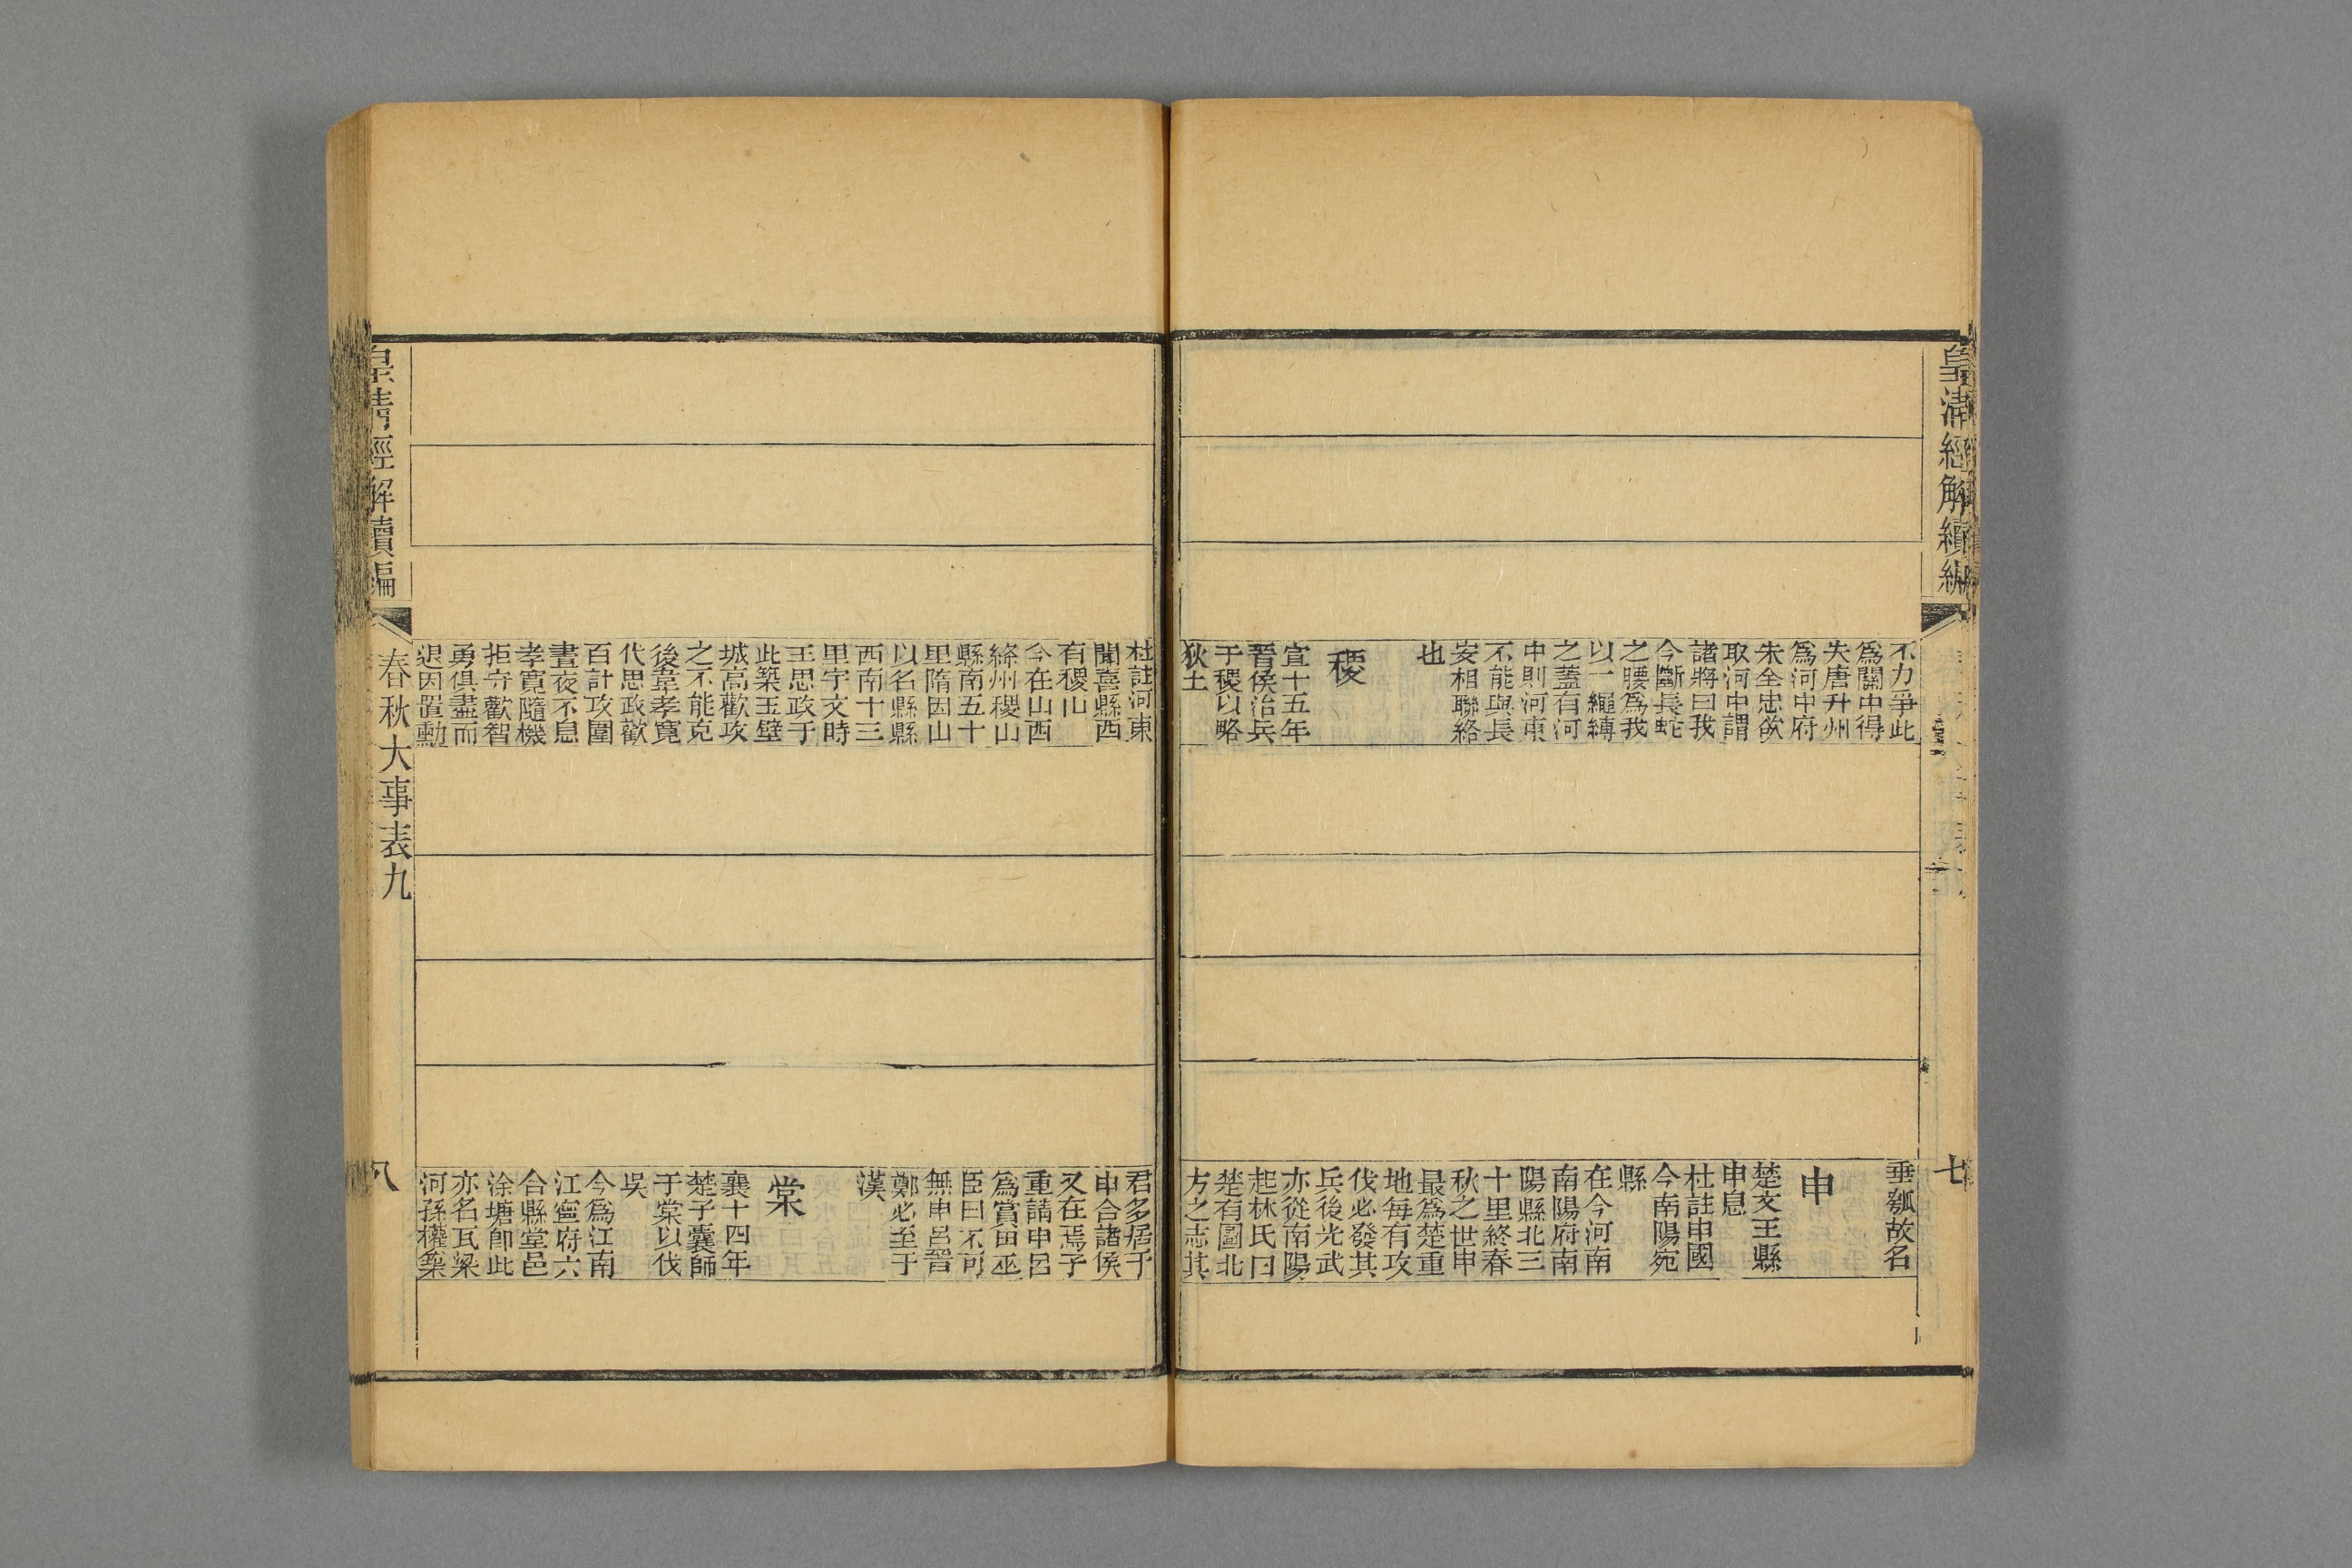 皇清經解續編
七
不力爭此
爲關中得
失唐升州
爲河中府
朱全忠欲
取河中謂
諸將曰我
今斷長蛇
之腰爲我
以一繩縛
之蓋有河
中則河東
不能與長
安相聯絡
也
稷
宣十五年
晉侯治兵
于稷以略
狄土
垂瓠故名
申
楚文王縣
申息
杜註申國
今南陽宛
縣
在今河南
南陽府南
陽縣北三
十里終春
秋之世申
最爲楚重
地每有攻
伐必發其
兵後光武
亦從南陽
起林氏曰
楚有圖北
方之志其
杜註河東
聞喜縣西
有稷山
今在山西
絳州稷山
縣南五十
里隋因山
以名縣縣
西南十三
里宇文時
王思政于
此築玉壁
城高歡攻
之不能克
後韋孝寬
代思政歡
百計攻圍
晝夜不息
孝寬隨機
拒守歡智
勇俱盡而
退因置勳
君多居于
申合諸侯
又在焉子
重請申呂
爲賞田巫
臣曰不可
無申呂晉
鄭必至于
漢
棠
襄十四年
楚子囊師
于棠以伐
吳
今爲江南
江寧府六
合縣堂邑
涂塘卽此
亦名瓦梁
河孫權築
皇清經解續編
春秋大事表九
八